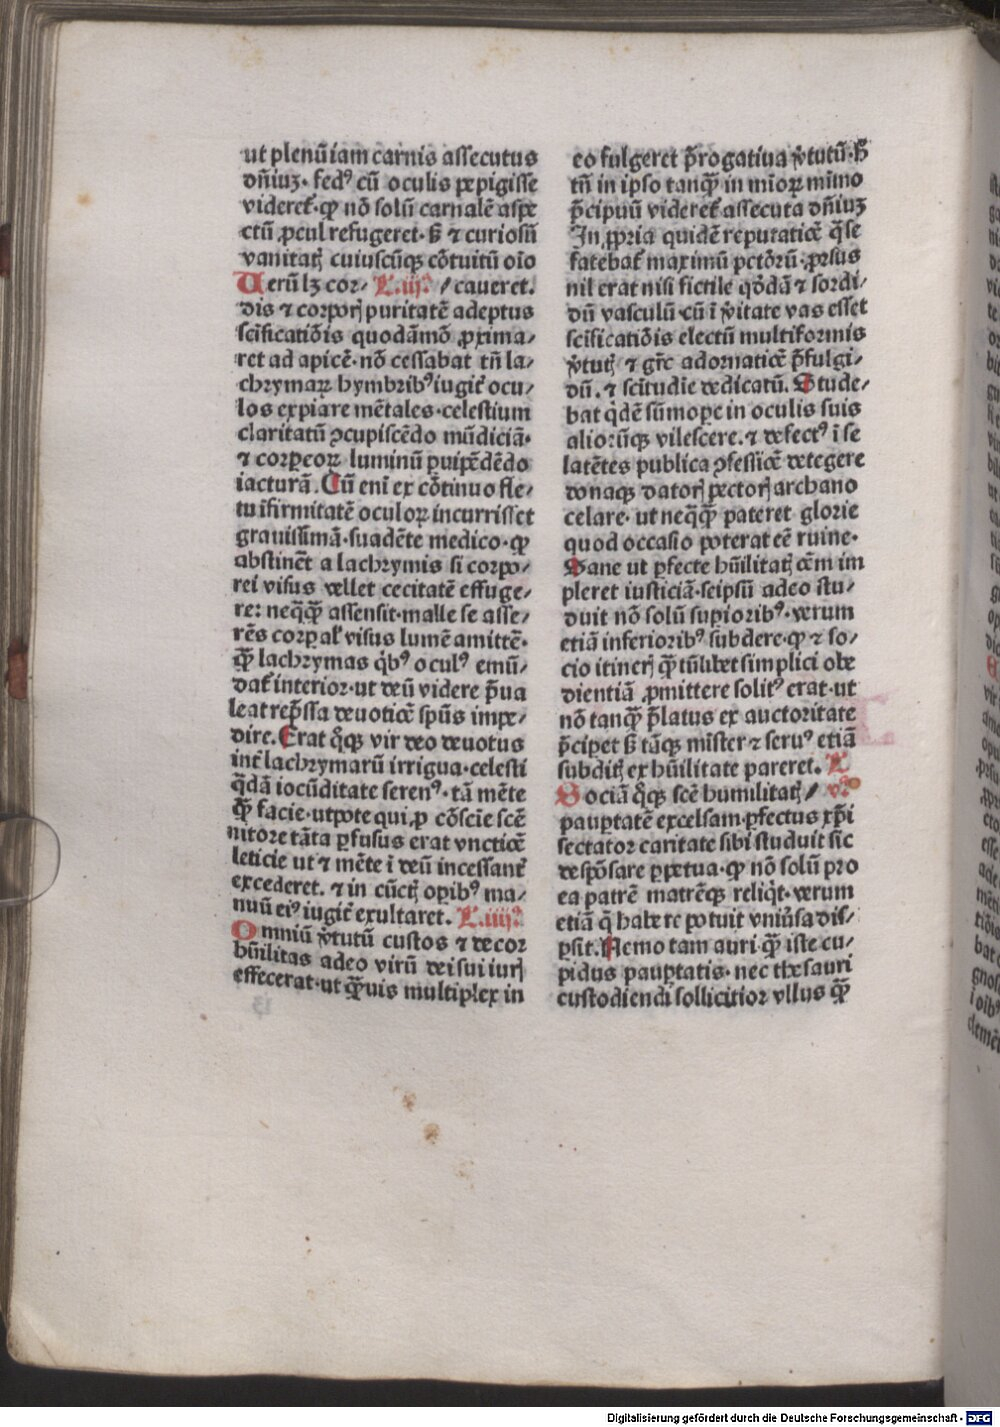 ut plenū iam carnis assecutus
dñiuʒ· fedꝰ cū oculis pepigisse
videret᷑· ꝙ nō solū carnalē aspe
ctū ꝓcul refugeret· sꝫ ⁊ curiosū
vanitatꝭ cuiuscūqꝫ cōtuitū oīo
Uerū lꝫ cor- L.iij.ª /caueret.
dis ⁊ corporꝭ puritatē adeptus
scīficatiōis quodāmō ꝓxima/
ret ad apicē· nō cessabat tñ la/
chrymaꝝ hymbribꝰ iugit᷑ ocu/
los expiare mētales· celestium
claritatū ꝯcupiscēdo mūdiciā·
⁊ corpeoꝝ luminū ꝑuipēdēdo
iacturā. Cū eni ex cōtinuo fle/
tu ifirmitatē oculoꝝ incurrisset
grauissimā· suadēte medico· ꝙ
abstinēt a lachrymis si corpo/
rei visus vellet cecitatē effuge/
re: neqꝙ̄ assensit· malle se asse/
rēs corpal᷑ visus lumē amittē·
ꝙ̄ lachrymas qͥbꝰ oculꝰ emū/
dat᷑ interior· ut deū videre p̄ua
leat rep̄ssa deuotiōē spūs impe/
dire. Erat qͣqꝫ vir deo deuotus
int᷑ lachrymarū irrigua· celesti
q̄dā iocūditate serenꝰ· tā mēte
ꝙ̄ facie· utpote qui ꝓ cōscīe scē
nitore tāta ꝑfusus erat vnctiōē
leticie ut ⁊ mēte ī deū incessant᷑
excederet. ⁊ in cūctꝭ operibꝰ ma/
nuū eiꝰ iugit᷑ exultaret. L.iiij.ª
Omniū v̓tutū custos ⁊ decor
hūilitas adeo virū dei sui iurꝭ
effecerat· ut ꝙ̄uis multiplex in
eo fulgeret p̄rogatiua v̓tutū· sꝫ
tñ in ipso tanꝙ̄ in mīoꝝ mīmo
p̄cipuū videret᷑ assecuta dñiuʒ
In ꝓpria quidē reputatiōē q̄ se
fatebat᷑ maximū pctōrū· ꝓrsus
nil erat nisi fictile qͦdā ⁊ sordi/
dū vasculū· cū ī v̓itate vas esset
scīficatiōis electū multiformis
v̓tutꝭ ⁊ grē adornatiōē p̄fulgi/
dū. ⁊ scītudīe dedicatū. Stude/
bat qͥdē sūmope in oculis suis
aliorūqꝫ vilescere. ⁊ defectꝰ ī se
latētes publica ꝯfessiōē detegere
donaqꝫ datorꝭ pectorꝭ archano
celare· ut neqꝙ̄ pateret glorie
quod occasio poterat eē ruine·
Sane ut ꝑfecte hūilitatꝭ oēm im
pleret iusticiā· seipsū adeo stu/
duit nō solū supioribꝰ· verum
etiā inferioribꝰ subdere· ꝙ ⁊ so/
cio itinerꝭ ꝙ̄tūlibet simplici obe
dientiā ꝓmittere solitꝰ erat· ut
nō tanꝙ̄ p̄latus ex auctoritate
p̄cipet sꝫ tāqꝫ mīster ⁊ seruꝰ etiā
subditꝭ ex hūilitate pareret. L
Sociā qͦqꝫ scē humilitatꝭ / v.ª
pauptatē excelsam· ꝑfectus xp̄i
sectator caritate sibi studuit sic
despōsare ꝑpetua· ꝙ nō solū pro
ea patrē matrēqꝫ reliqͥt· verum
etiā q̄ habere potuit vniu̓sa dis/
psit. Nemo tam auri ꝙ̄ iste cu/
pidus pauptatis· nec thesauri
custodiendi sollicitior vllus ꝙ̄
Digitalisierung gefördert durch die Deutsche Forschungsgemeinschaft - DFG